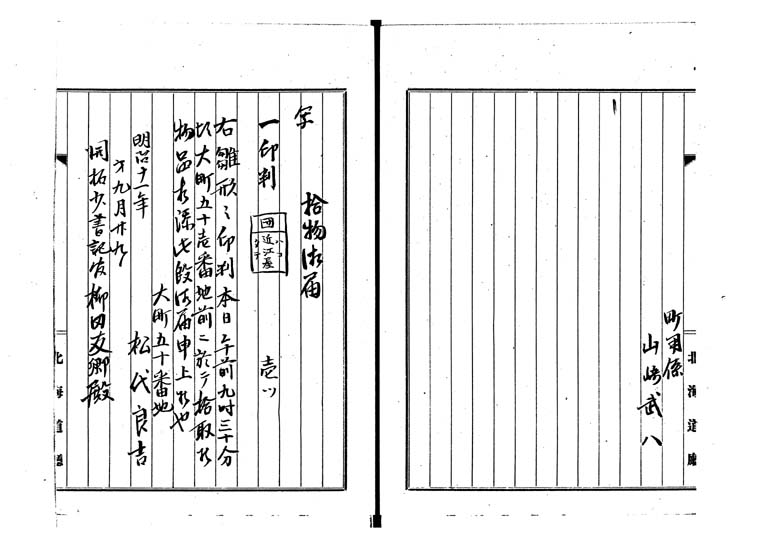 町用係
山崎武八
北海道廳
写
拾物御届
一印判 壱ッ
近江屋
右雛形ミ印判本日午前九时三十分
大町五十壱番地前ニ於テ拾取候
物品相添此段御届申上候也
大町五十番地
明治十一年 松代良吉
九月廿九
開拓少書記官柳田友卿殿
北海道廳